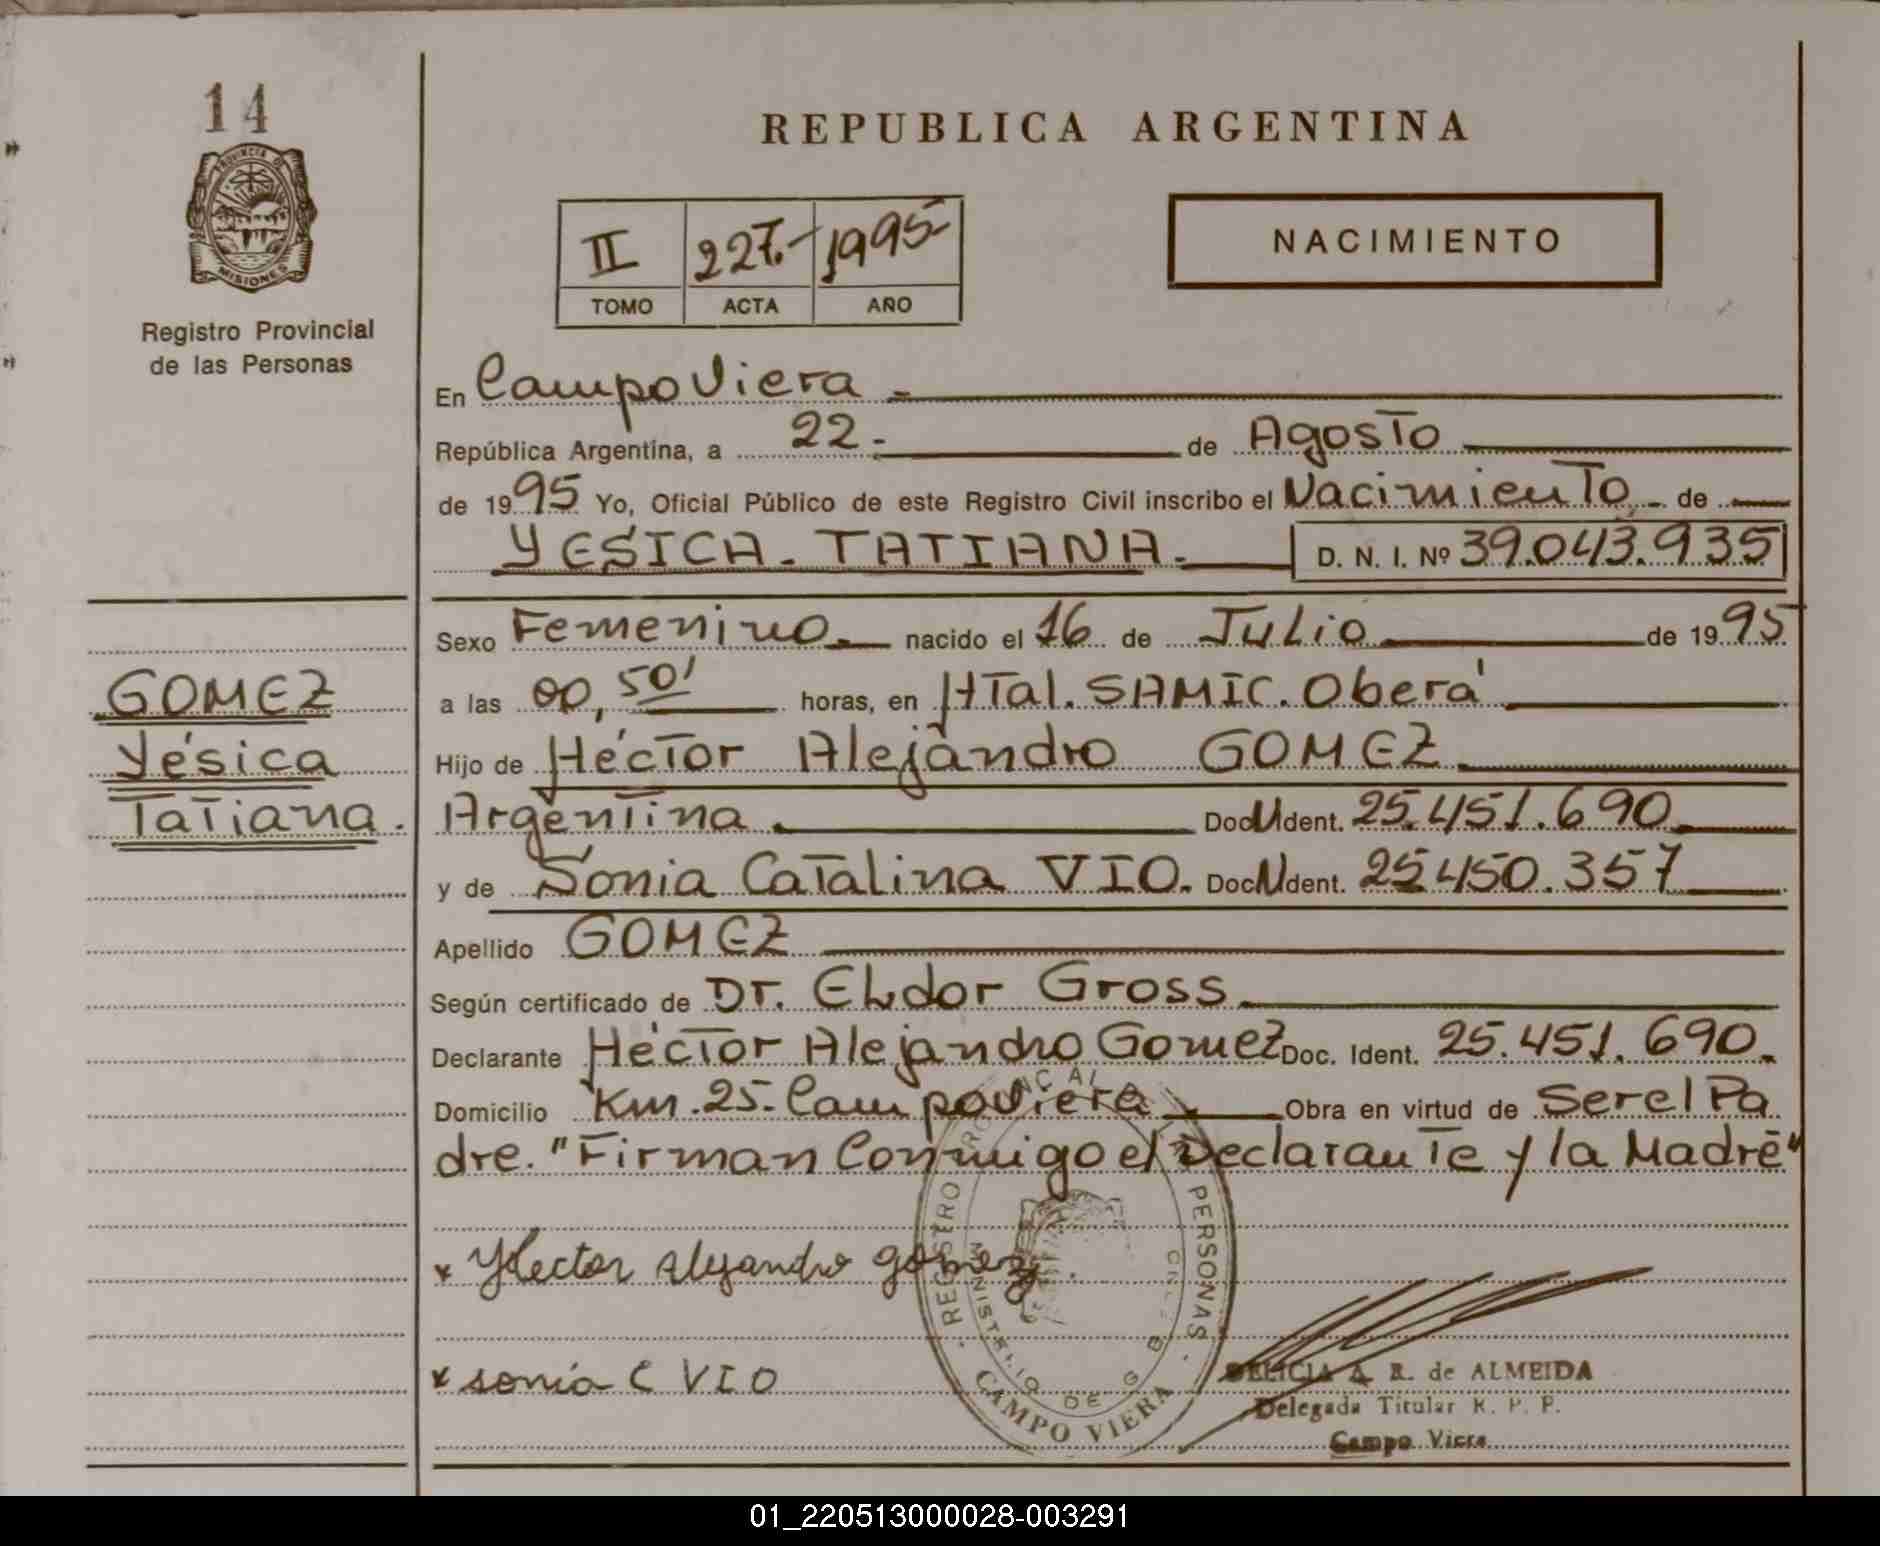 14
PROVINCIA DE
MISIONES
Registro Provincial
de las Personas
REPUBLICA ARGENTINA
II 227.- 1995-
TOMO ACTA AÑO
NACIMIENTO
En Campo Viera -
República Argentina, a 22.- de Agosto
de 1995 Yo, Oficial Público de este Registro Civil inscribo el Nacimiento - de
YESICA. TATIANA.- D. N. I. Nº 39.043.935
Sexo Femenino.- nacido el 16 de Julio de 1995
GOMEZ
Yésica
Tatiana.
a las 00,50' horas, en HTal. SAMIC. Oberá
Hijo de Héctor Alejandro GOMEZ
Argentina. Doc.N.Ident. 25.451.690
y de Sonia Catalina VIO. Doc.N.Ident. 25.450.357
Apellido GOMEZ
Según certificado de Dr. Eldor Gross
Declarante Héctor Alejandro Gomez Doc. Ident. 25.451.690.
Domicilio Km.25.- Campo Viera Obra en virtud de Ser el Pa
dre. "Firman Conmigo el Declarante y la Madre"
REGISTRO PROVINCIAL PERSONAS
MINISTERIO DE
CAMPO VIERA
x Hector Alejandro gomez
x sonia C VIO
DELICIA A. R. de ALMEIDA
Delegada Titular R. P. P.
Campo Viera
01_220513000028-003291